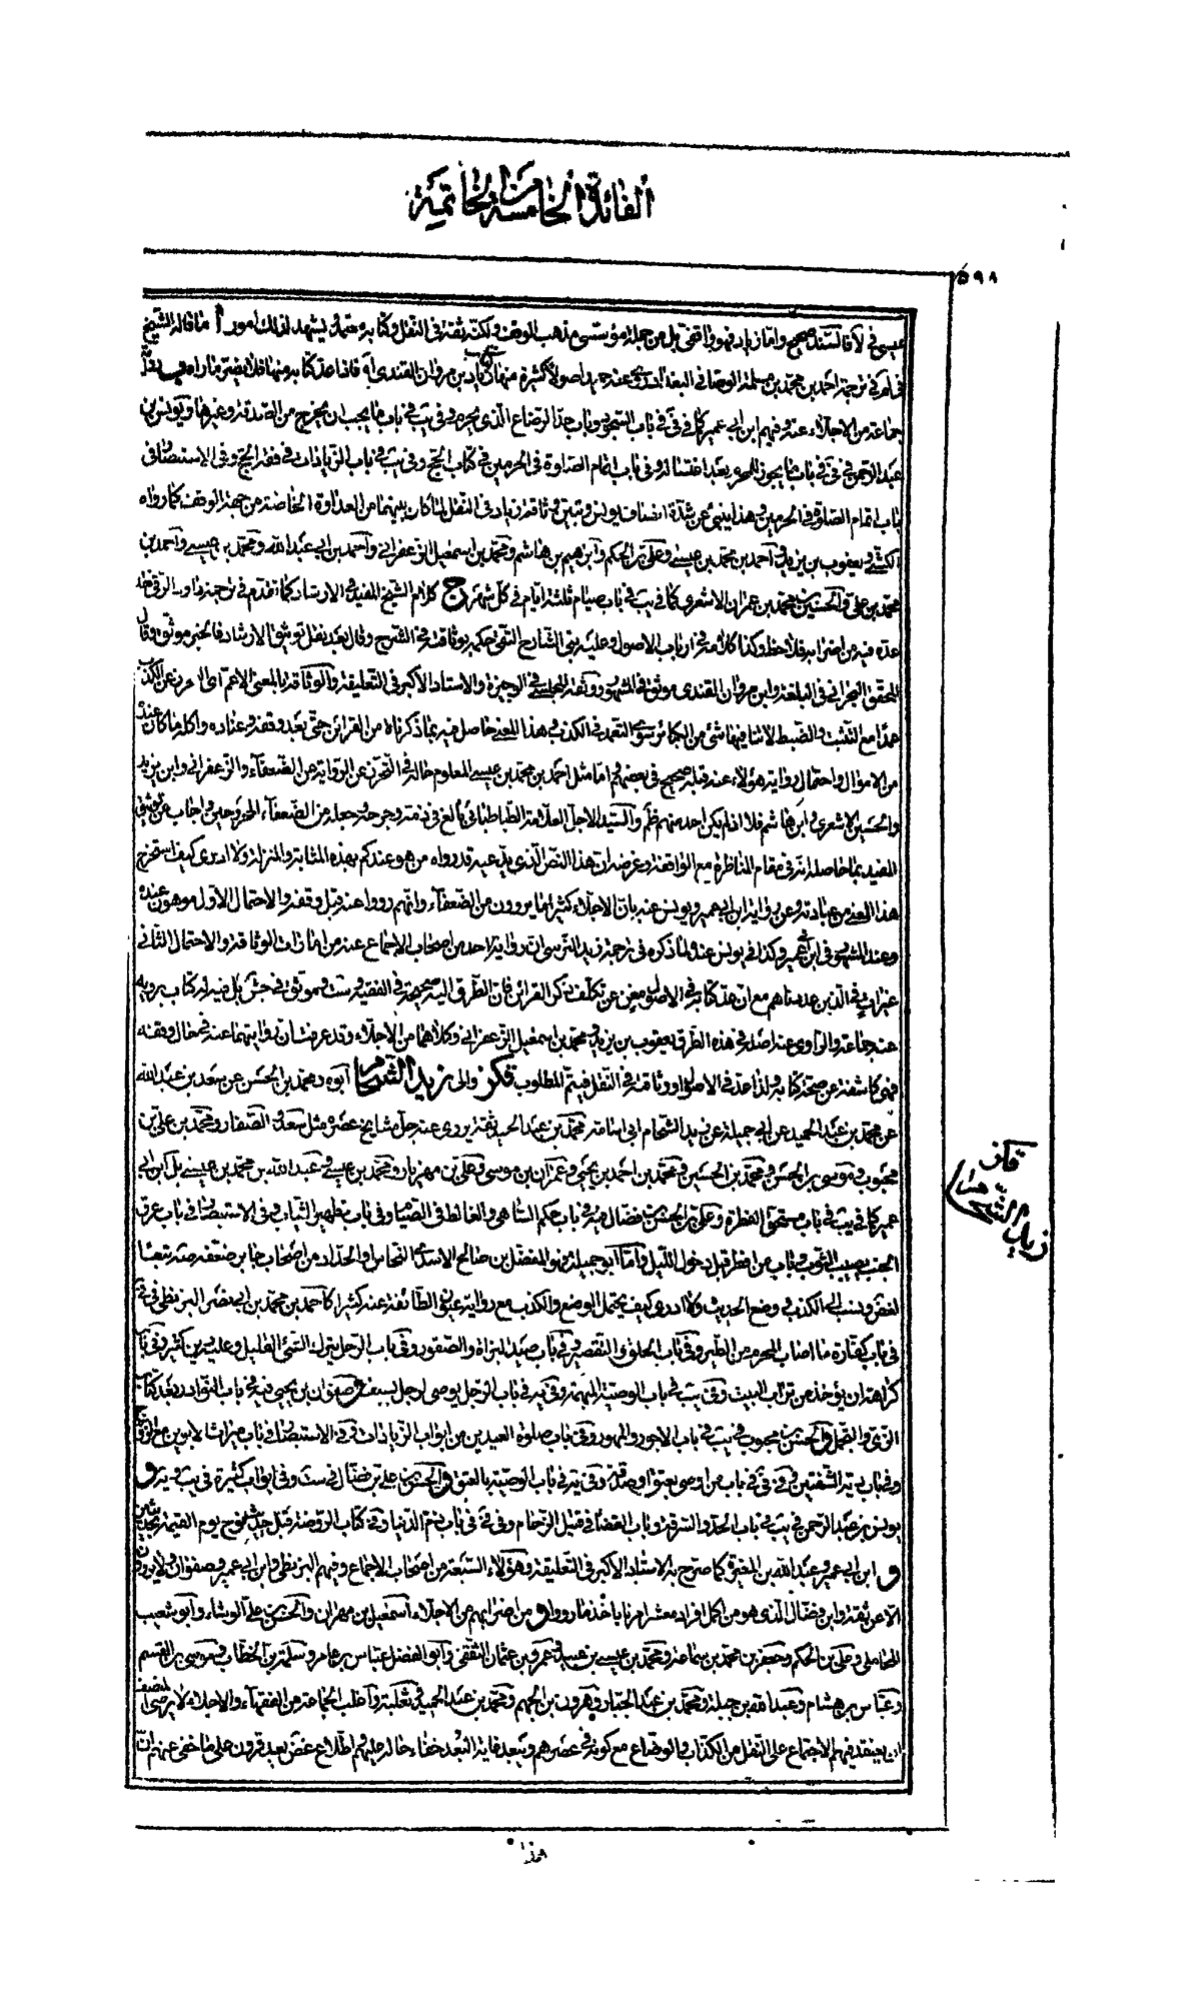 الفائدة الخامسة من الخاتمة
٥٩٨
عيسى في لا فالسند صحيح واما زياد فهو واقفي بل من جملة مؤسسي مذهب الوقف ولكنه ثقة في النقل وكتابه معتمد يشهد لذلك امور ا ما قاله الشيخ
في ترجمة احمد بن محمد بن مسلمة الرصافي البغدادي روى عنه حميد اصولا كثيرة منها كتاب زياد بن مروان القندي
جماعة من الاجلاء عنه وفيهم ابن ابي عمير كما في في في باب السجود وباب حد الرضاع الذي يحرم وفي يب في باب ما يجب ان يخرج من الصدقة وغيرها ويونس بن
عبد الرحمن في في في باب ما يجوز للمحرم بعد اغتساله وفي باب اتمام الصلوة في الحرمين في كتاب الحج وفي يب في باب الزيادات في فقه الحج وفي الاستبصار في
باب اتمام الصلوة في الحرمين وهذا ينبئ عن شدة انصاف يونس وتبين وثاقة زياد في النقل لما كان بينهما من العداوة الخاصة من جهة الوقف كما رواه
الكشي ويعقوب بن يزيد واحمد بن محمد بن عيسى وعلي بن الحكم وابراهيم بن هاشم ومحمد بن اسمعيل الزعفراني واحمد بن ابي عبد الله ومحمد بن عيسى واحمد بن
محمد بن عمران الاشعري كما في يب في باب صيام ثلثة ايام في كل شهر ج كلام الشيخ المفيد في الارشاد كما تقدم في ترجمة داود الرقي
عده فيه من اضرابه فلاحظ وكذا كلامه في ارباب الاصول وعليه بنى الشارح التقي حكمه بوثاقته في الشرح وقال بعد نقل توثيق الارشاد فالخبر موثق وقال
المحقق البحراني في البلغة وابن مروان القندي موثق في المشهور ووثقه المجلسي في الوجيزة والاستاد الاكبر في التعليقة والوثاقة بالمعنى الاعم
عمدا مع التثبت والضبط لا ينافيها شئ من الكبائر سوى التعمد في الكذب وهذا المعنى حاصل فيه بما ذكرناه من القرائن حتى بعد وقفه وعناده واكله ما كان عنده
من الاموال واحتمال رواية هؤلاء عنه قبله صحيح في بعضهم اما مثل احمد بن محمد بن عيسى المعلوم حاله في التحرز عن الرواية عن الضعفاء والزعفراني وابن يزيد
والحسين الاشعري وابن هاشم فلا اذ لم يكن احد منهم والسيد الاجل العلامة الطباطبائي بالغ في ذمه وجرحه وجعله من الضعفاء المجروحين واجاب عن توثيق
المفيد بما حاصله انه في مقام المناظرة مع الواقفة وغرضه ان هذا النص الذي يدعيه قد رواه من هو عندكم بهذه المثابة والمنزلة ولا ادري كيف استخرج
هذا المعنى من عبارته وعن رواية ابن ابي عمير ويونس عنه بان الاجلاء كثيرا ما يروون من الضعفاء وانهم رووا عنه قبل وقفه والاحتمال الاول موهون عنده
وعند المشهور في ابن ابي عمير وكذا في يونس عنده لما ذكره في ترجمة زيد النرسي ان رواية احد من اصحاب الاجماع عنه من امارات الوثاقة والاحتمال الثاني
غير ات في الذين عددناهم مع ان عد كتابه في الاصول مغن عن تكلف ذكر القرائن فان الطرق اليه صحيحة في الفقيه وست وموثق في جش بل فيه له كتاب يرويه
عنه جماعة والراوي عنه اصله في هذه الطرق يعقوب بن يزيد ومحمد بن اسمعيل الزعفراني وكلاهما من الاجلاء وقد عرفت ان روايتهما عنه في حال وقفه
فهي كاشفة عن صحة كتابه ولذا عد في الاصول ووثاقته في النقل فيتم المطلوب قكز والى زيد الشحام ابوه ومحمد بن الحسن عن سعد بن عبد الله
عن محمد بن عبد الحميد عن ابي جميلة عن زيد الشحام ابي اسامة محمد بن عبد الحميد ثقة يروي عنه جل مشايخ عصره مثل سعد والصفار ومحمد بن علي بن
محبوب وموسى بن الحسن ومحمد بن الحسين ومحمد بن احمد بن يحيى وعمران بن موسى وعلي بن مهزيار ومحمد بن عيسى وعبد الله بن محمد بن عيسى بل ابن ابي
عمير كما في يب في باب مستحق الفطرة وعلي بن الحسن بن فضال فيه في باب حكم الساهي والغالط في الصيام وفي باب تطهير الثياب وفي الاستبصار في باب عرق
الجنب يصيب الثوب وباب من افطر قبل دخول الليل واما ابو جميلة فهو المفضل بن صالح الاسدي النحاس والحداد من اصحاب جابر ضعفه جش تبعا
لغض ونسب الى الكذب ووضع الحديث ولا ادري كيف يحتمل الوضع والكذب مع رواية عيون الطائفة عنه كثيرا كاحمد بن محمد بن ابي نصر البزنطي في في
في باب كفارة ما اصاب المحرم من الطير وفي باب الحلق والتقصير وفي باب صيد البزاة والصقور وفي باب الرجل يترك الشئ القليل وعليه دين كثير وفي باب
كراهة ان يؤخذ من تراب البيت وفي يب في باب الوصية المبهمة وفي يه في باب الرجل يوصي لرجل بسيف وصفوان بن يحيى فيه في باب النوادر بعد كتاب
الزي والتجمل والحسن بن محبوب في يب في باب الاجور والمهور وفي باب صلوة العيدين من ابواب الزيادات وفي الاستبصار في باب ميراث الابوين مع الزوج
وفي باب دية الشفتين وفي في في باب من اوصى بعتق او صدقة وفي يه في باب الوصية بالعتق والحسن بن علي بن فضال في ست وفي ابواب كثيرة في يب ويه و
يونس بن عبد الرحمن في يب في باب الحد والسرقة وباب القضاء في قتيل الزحام وفي في في باب ذم الدنيا وفي كتاب الروضة قبل حديث نوح يوم القيمة
و ابن ابي عمير وعبد الله بن المغيرة كما صرح به الاستاد الاكبر في التعليقة وهؤلاء السبعة من اصحاب الاجماع وفيهم البزنطي وابن ابي عمير وصفوان ولا يروون
الا عن ثقة وابن فضال الذي هو من اكمل افراد معشر امرنا باخذ ما رووا و من اضرابهم من الاجلاء اسمعيل بن مهران والحسن بن علي الوشاء وابو شعيب
المحاملي وعلي بن الحكم وجعفر بن محمد بن سماعة ومحمد بن عيسى بن عبيد وعمرو بن عثمان الثقفي وابو الفضل عباس بن عامر وسلمة بن الخطاب وموسى بن القسم
وعباس بن هشام وعبد الله بن جبلة ومحمد بن عبد الجبار وهرون بن الجهم ومحمد بن عبد الحميد وثعلبة واغلب الجماعة من الفقهاء والاجلاء لا يرضى المنصف
ان يعتقد فيهم الاجتماع على النقل من الكذاب والوضاع مع كونه في عصرهم ويبعد غاية البعد خفاء حاله عليهم واطلاع غض بعد قرون على ما خفي عنهم
قكز
زيد الشحام